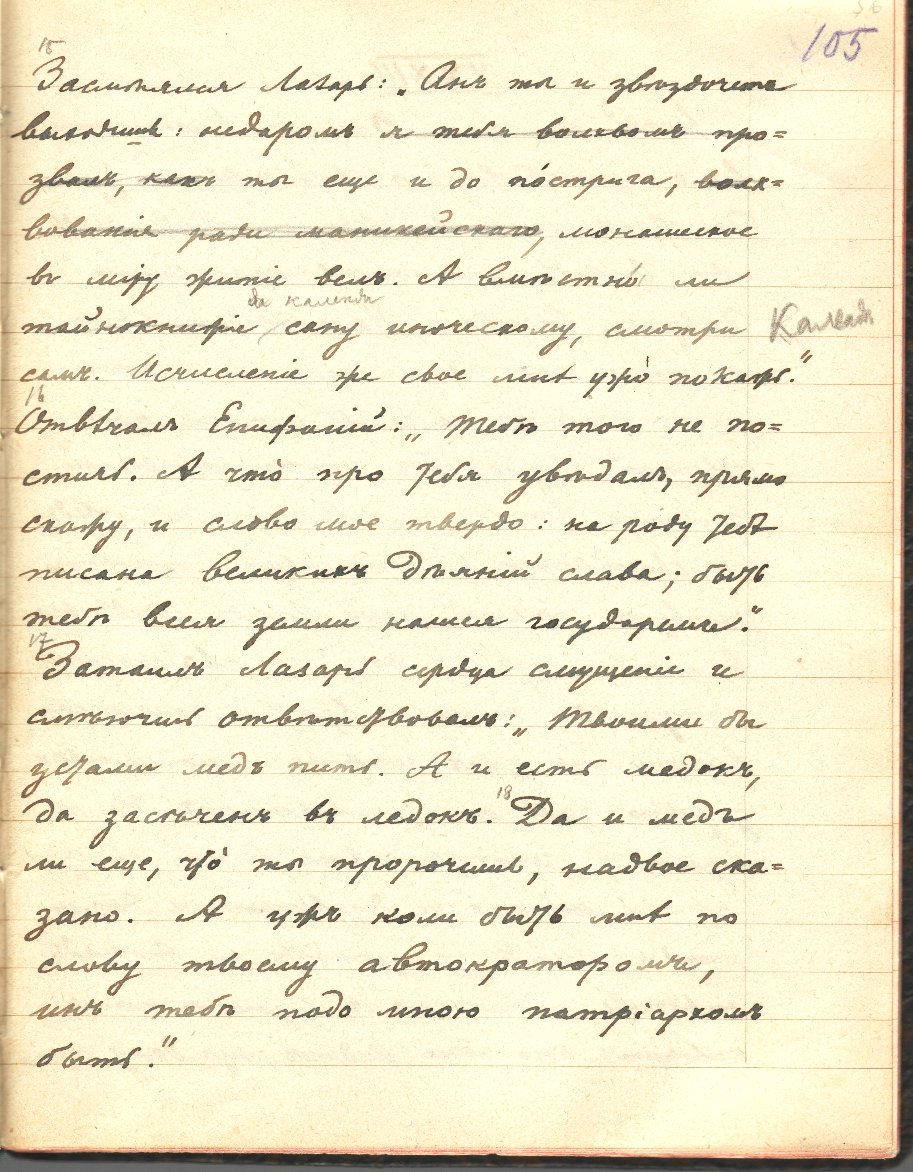 105
15
Засмѣялся Лазарь: „Анъ ты и звѣздочетъ
выходишь: недаромъ я тебя волхвомъ про=
звалъ, какъ ты еще и до по́стрига, волх=
вованія ради манихейскаго, монашеское
въ міру житіе велъ. А вмѣстно́ ли
да календы
тайнокнижіе сану иноческому, смотри
самъ. Исчисленіе же свое мнѣ ужо̀ покажь."
16
Отвѣчалъ Епифаній: „Тебѣ того не по=
стичь. А что̀ про тебя увѣдалъ, прямо
скажу, и слово мое твердо: на роду тебѣ
писана великихъ дѣяній слава; быть
тебѣ всея земли нашея государемъ."
17
Затаилъ Лазарь сердца смущеніе и
смѣючись отвѣтствовалъ: „Твоими бы
устами медъ пить. А и есть медокъ,
да засѣченъ въ ледокъ. 18 Да и медъ
ли еще, что̀ ты пророчишь, надвое ска=
зано. А ужъ коли быть мнѣ по
слову твоему автократоромъ,
инъ тебѣ подо мною патріархомъ
быть."